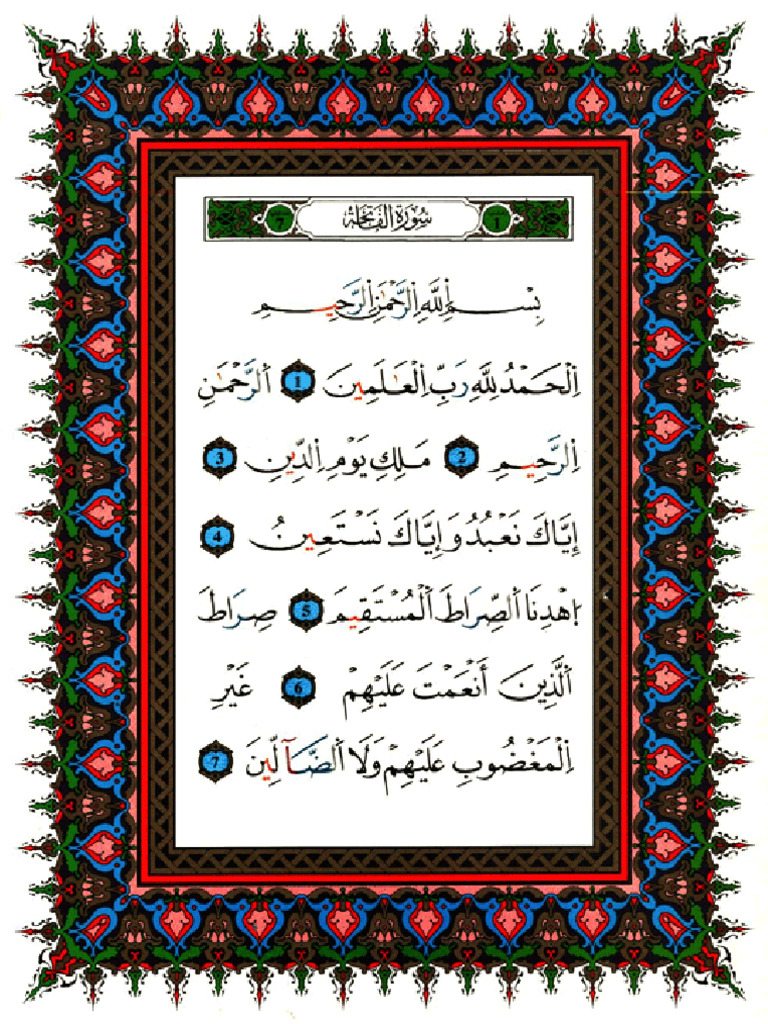 سُورَةُ الفَاتِحَة
بِسْمِ اِللَّهِ اِلرَّحْمَٰنِ اِلرَّحِيمِ
اِلْحَمْدُ لِلَّهِ رَبِّ اِلْعَٰلَمِينَ 1 اَلرَّحْمَٰنِ
اِلرَّحِيمِ 2 مَلِكِ يَوْمِ اِلدِّينِ 3
إِيَّاكَ نَعْبُدُ وَإِيَّاكَ نَسْتَعِينُ 4
اِهْدِنَا اَلصِّرَاطَ اَلْمُسْتَقِيمَ 5 صِرَاطَ
اَلَّذِينَ أَنْعَمْتَ عَلَيْهِمْ 6 غَيْرِ
اِلْمَغْضُوبِ عَلَيْهِمْ وَلَا اَلضَّآلِّينَ 7